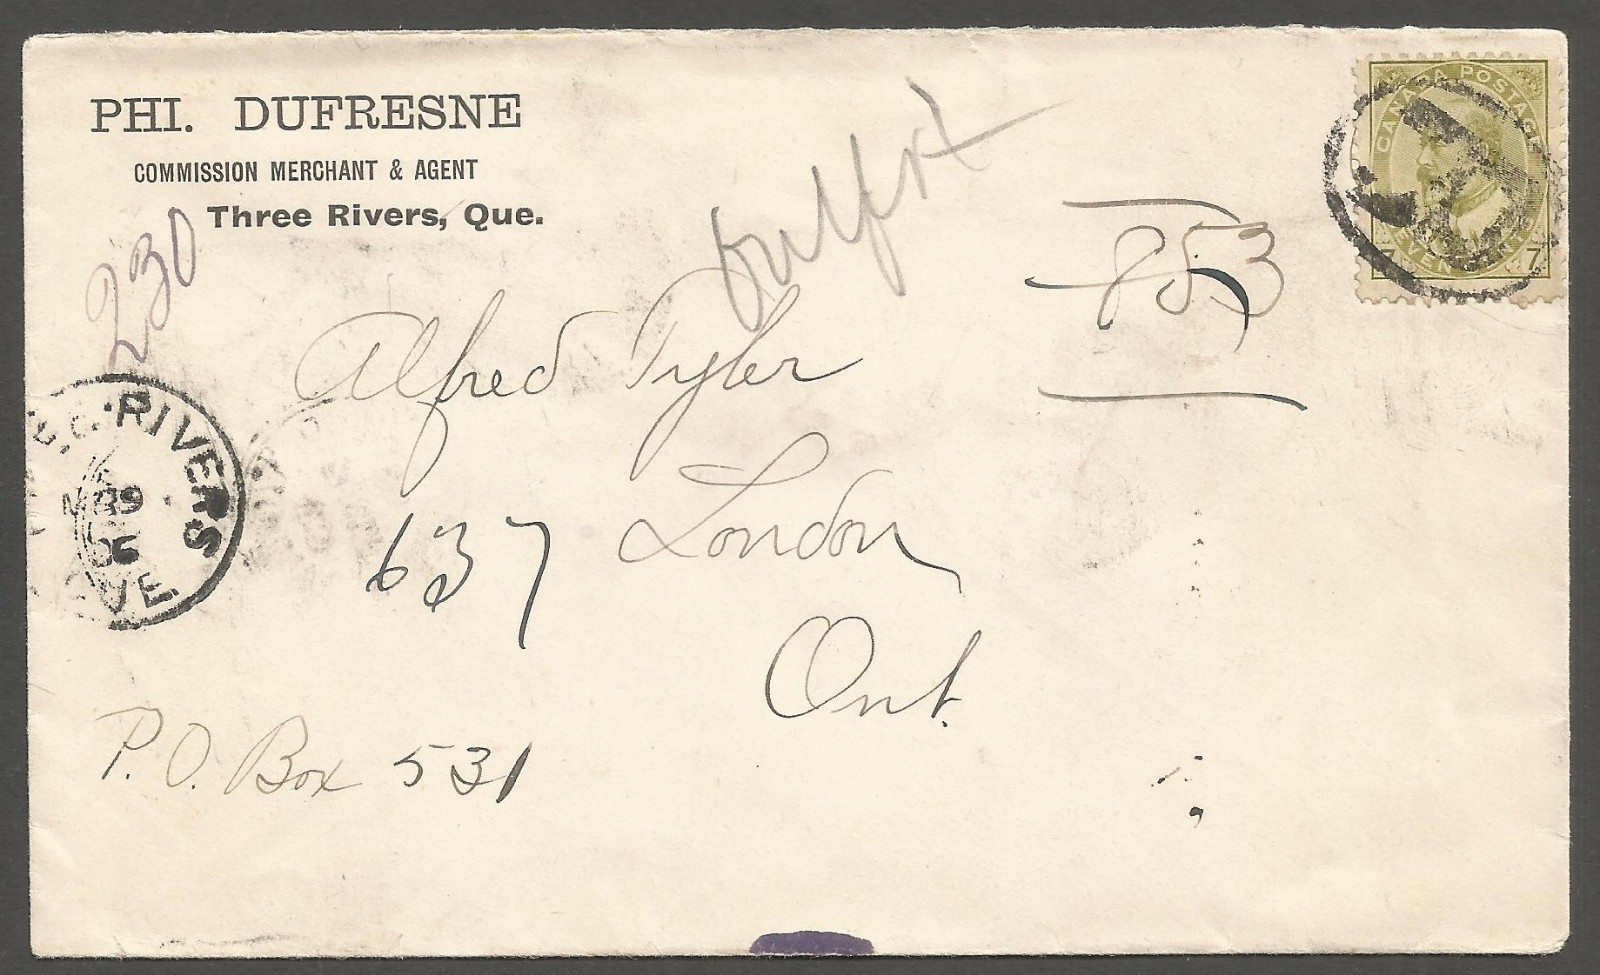 PHI. DUFRESNE
COMMISSION MERCHANT & AGENT
Three Rivers, Que.
230
853
CANADA POSTAGE
7 7
Alfred Tyler
637 London
Ont.
P.O. Box 531
RIVERS
06